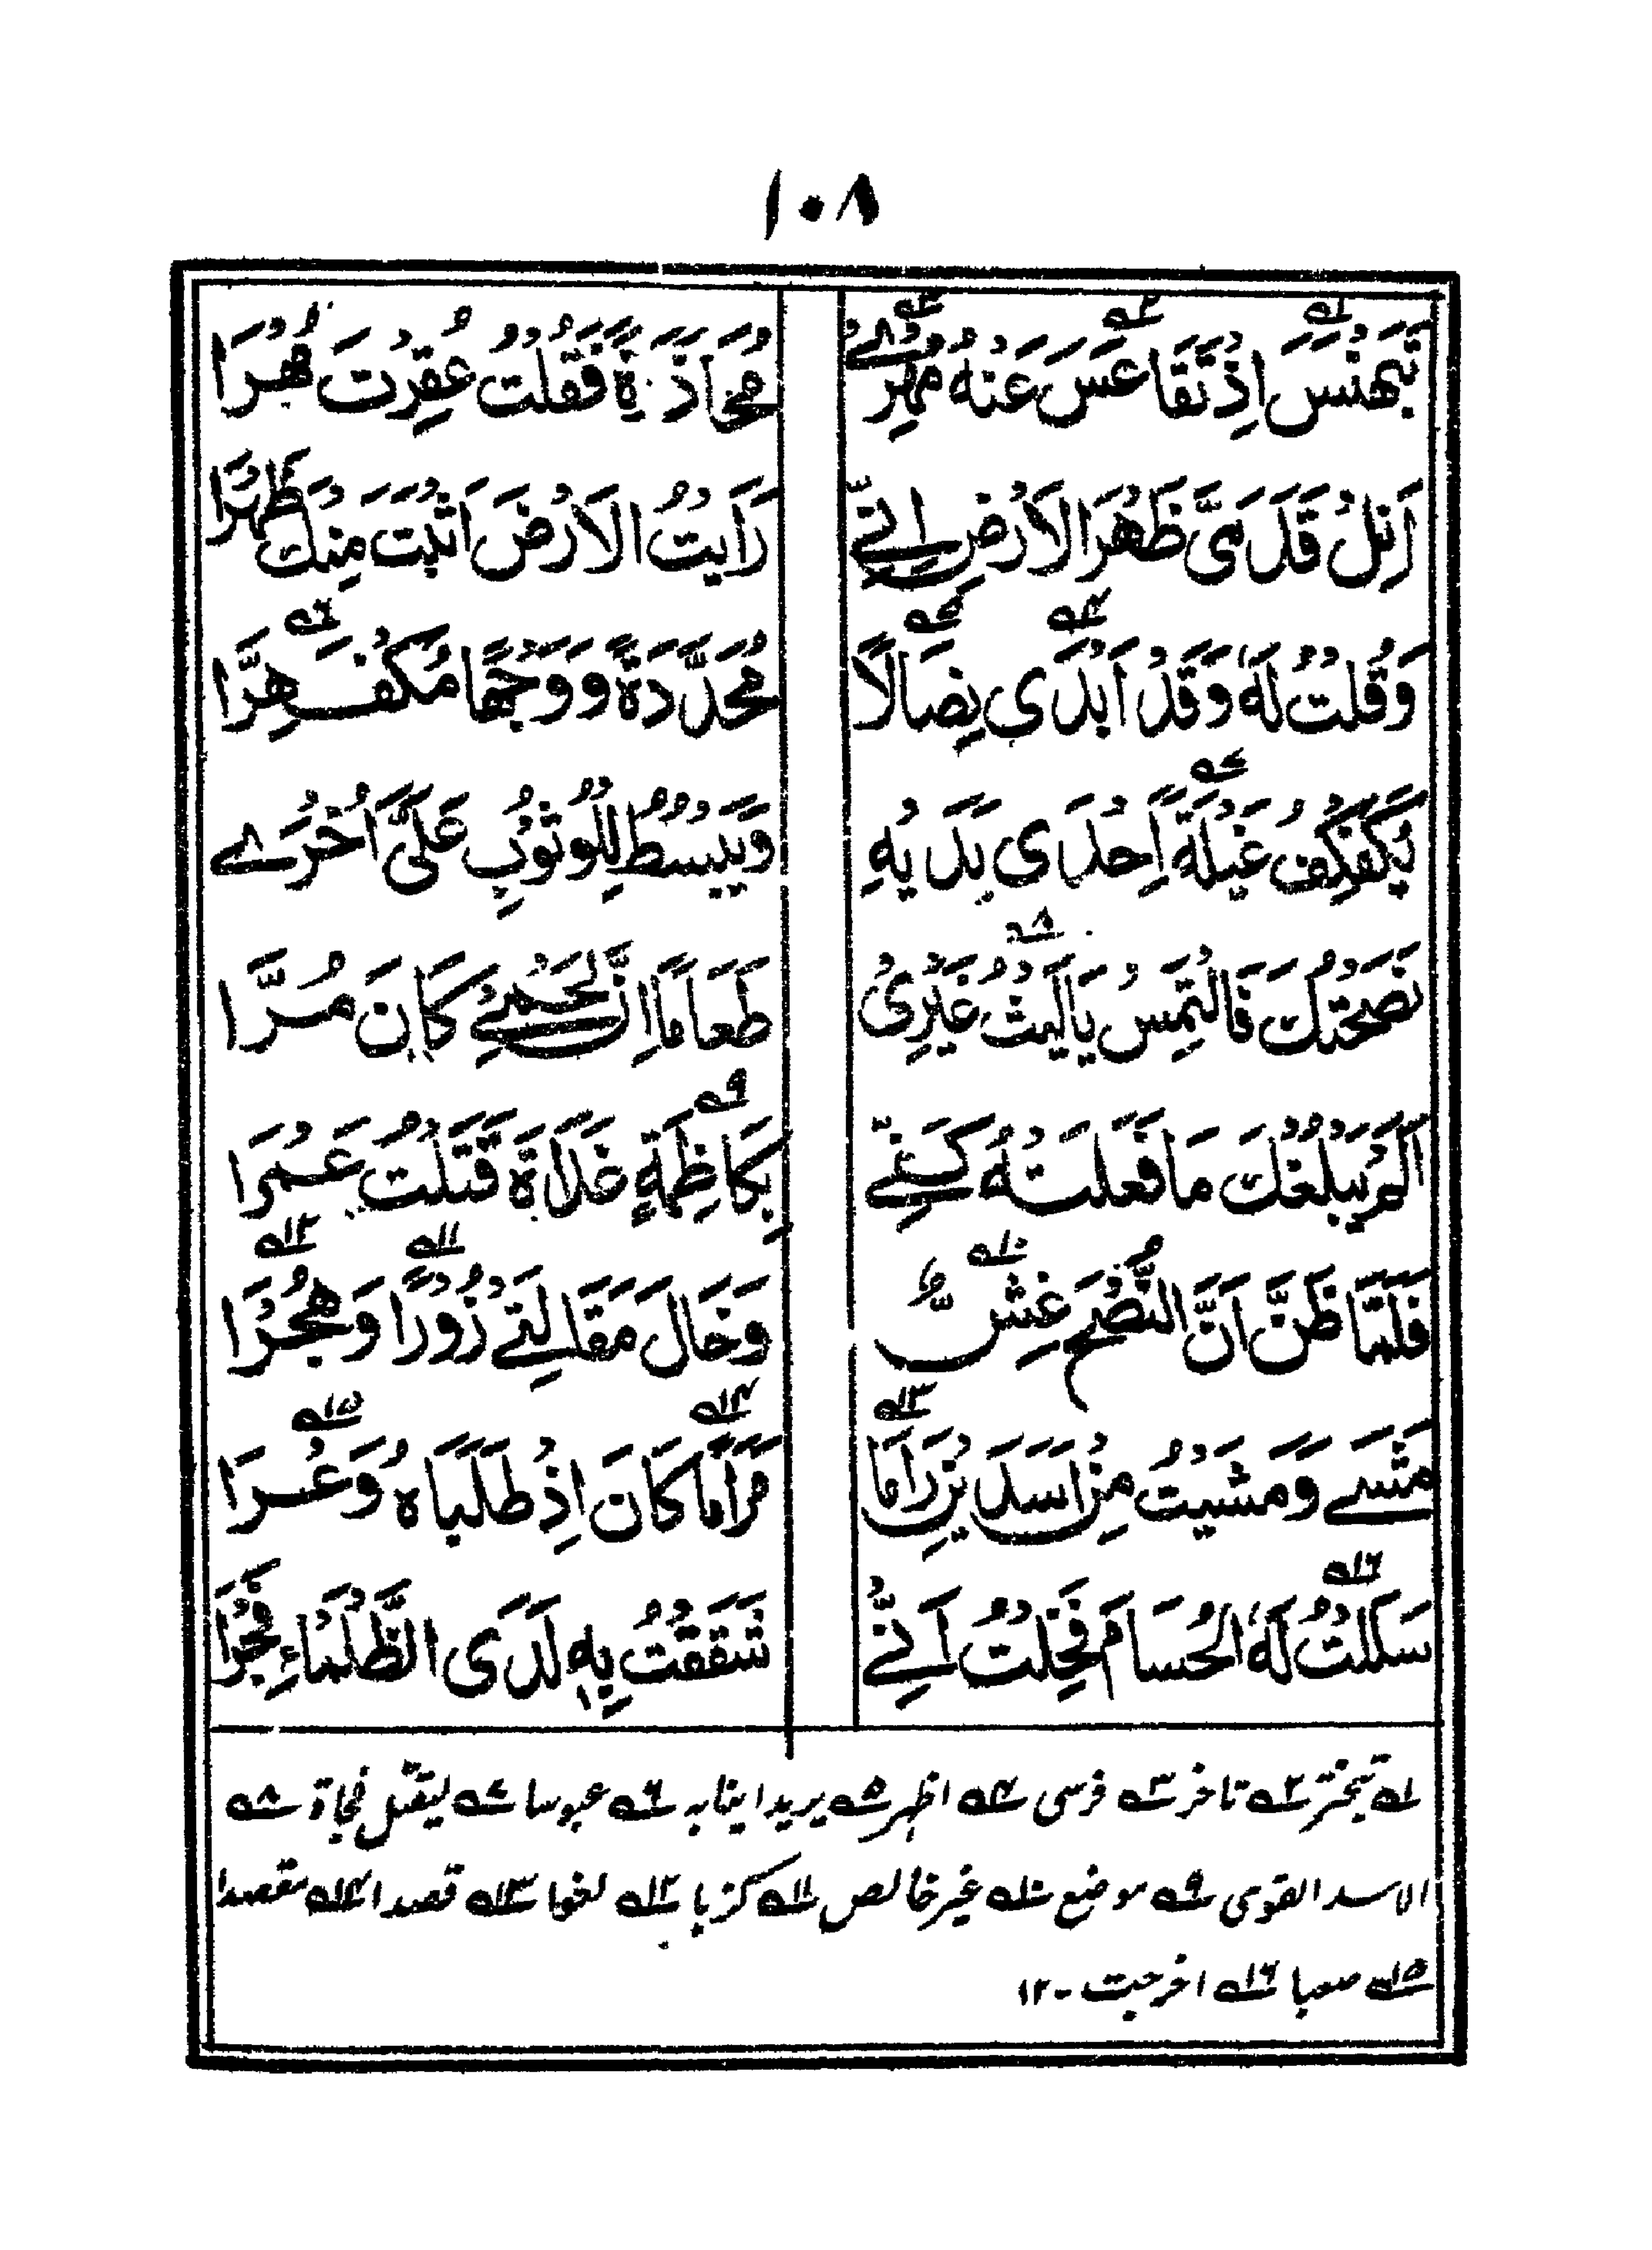 ١٠٨
تَبَهْنَسَ اِذْ تَقَاعَسَ عَنْهُ مُهْرِىْ مُحَاذَرَةً فَقُلْتُ عُقِرْتَ مُهْرَا
اَنِلْ قَدَمَىَّ ظَهْرَ الْاَرْضِ اِنِّىْ رَاَيْتُ الْاَرْضَ اَثْبَتَ مِنْكَ ظَهْرًا
وَقُلْتُ لَهٗ وَقَدْ اَبْدٰى نِصَالًا مُحَدَّدَةً وَوَجْهًا مُكْفَهِرَّا
يُكَفْكِفُ غِيْلَةً اِحْدٰى يَدَيْهِ وَيَبْسُطُ لِلْوُثُوْبِ عَلَىَّ اُخْرٰى
نَصَحْتُكَ فَالْتَمِسْ يَالَيْثُ غَيْرِىْ طَعَامًا اِنَّ لَحْمِىْ كَانَ مُرَّا
اَلَمْ يَبْلُغْكَ مَا فَعَلَتْهُ كَفِّىْ بِكَاظِمَةٍ غَدَاةَ قَتَلْتُ عَمْرَا
فَلَمَّا ظَنَّ اَنَّ النُّصْحَ غِشٌّ وَخَالَ مَقَالَتِىْ زُوْرًا وَهُجْرَا
مَشٰى وَمَشَيْتُ مِنْ اَسَدَيْنِ رَامَا مَرَامًا كَانَ اِذْ طَلَبَاهُ وَعْرَا
سَلَلْتُ لَهُ الْحُسَامَ فَخِلْتُ اَنِّىْ شَقَقْتُ بِهٖ لَدَى الظَّلْمَاءِ فَجْرَا
١ تبختر ٢ تاخر ٣ فرسى ٤ اظهر ٥ يريد انيابه ٦ عبوسا ٧ ليقتل فجاة ٨
الاسد القوى ٩ موضع ١٠ غير خالص ١١ كزبا ١٢ لغوا ١٣ قصدا ١٤ مقصدا
١٥ صعبا ١٦ اخرجت - ١٢